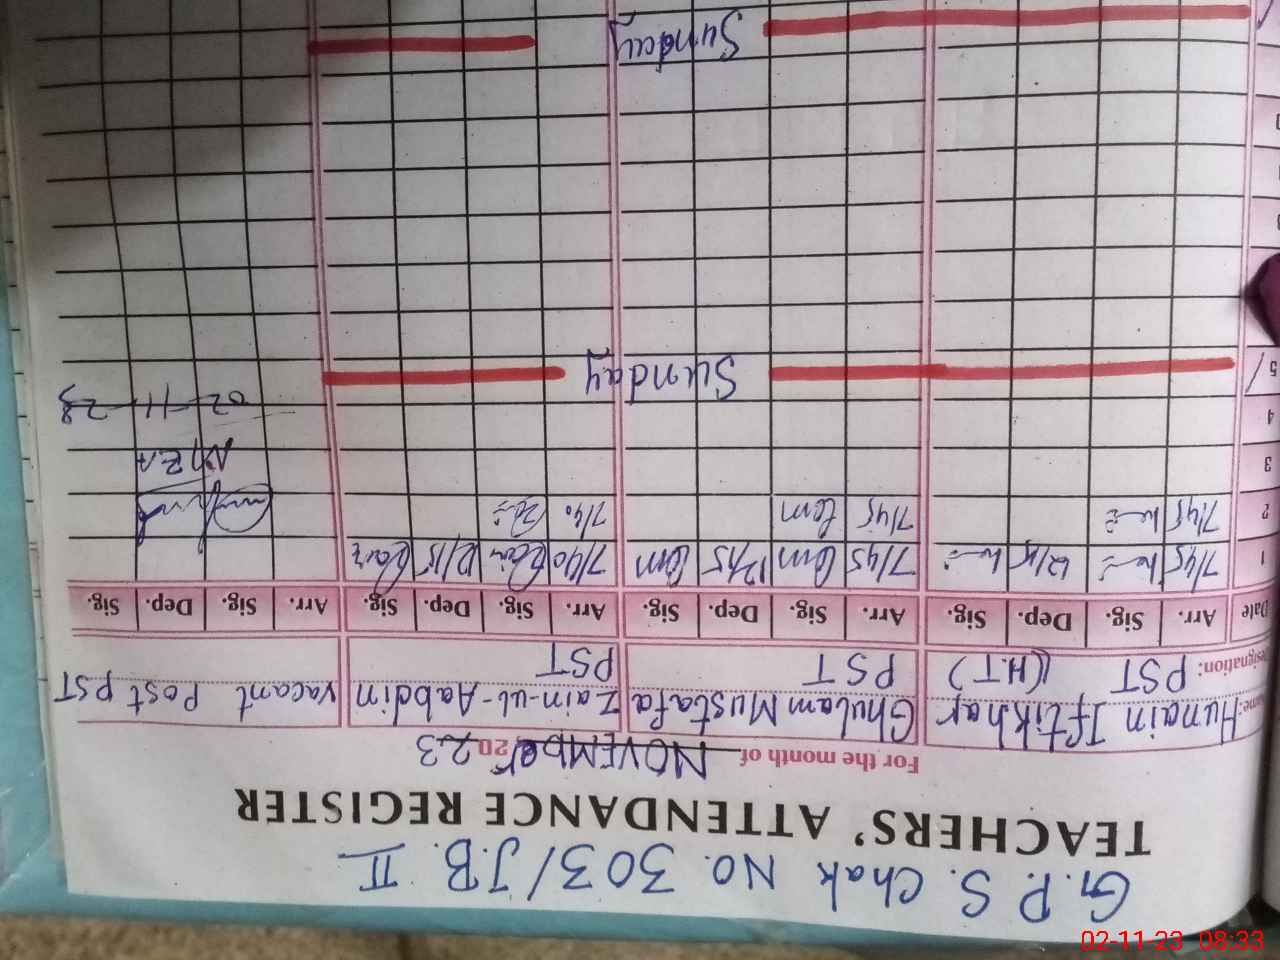 G.P.S. Chak No. 303/J.B. II
TEACHERS' ATTENDANCE REGISTER
For the month of NOVEMBER 2023
Name: Hunain Iftikhar Ghulam Mustafa Zain-ul-Aabdin Vacant Post PST
Designation: PST (H.T) PST PST
Date Arr. Sig. Dep. Sig. Arr. Sig. Dep. Sig. Arr. Sig. Dep. Sig. Arr. Sig. Dep. Sig.
1 7/45 12/15 7/45 12/15 7/40 12/15
2 7/45 7/45 7/40
3
4 02-11-23
5 Sunday
Sunday
02-11-23 08:33